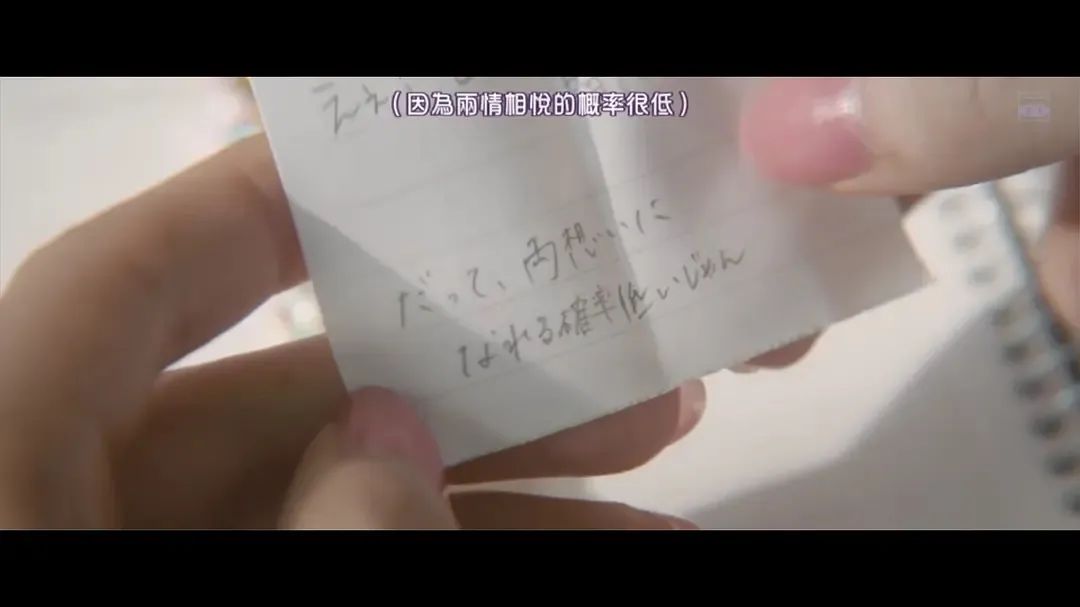 （因為兩情相悅的概率很低）
だって、両想いに
なれる確率低いじゃん